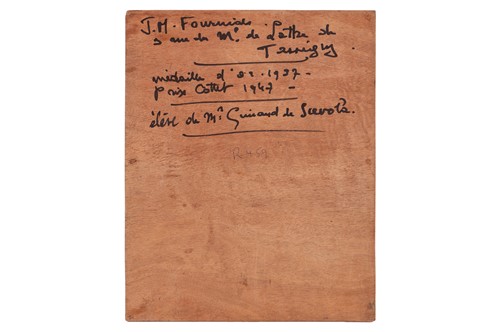 J.M. Fournier.
5 rue du Mal de Lattre de
Tassigny.
médaille d'or. 1937 -
prix Cottet 1947 -
élève de Mr Guirand de Scevola.